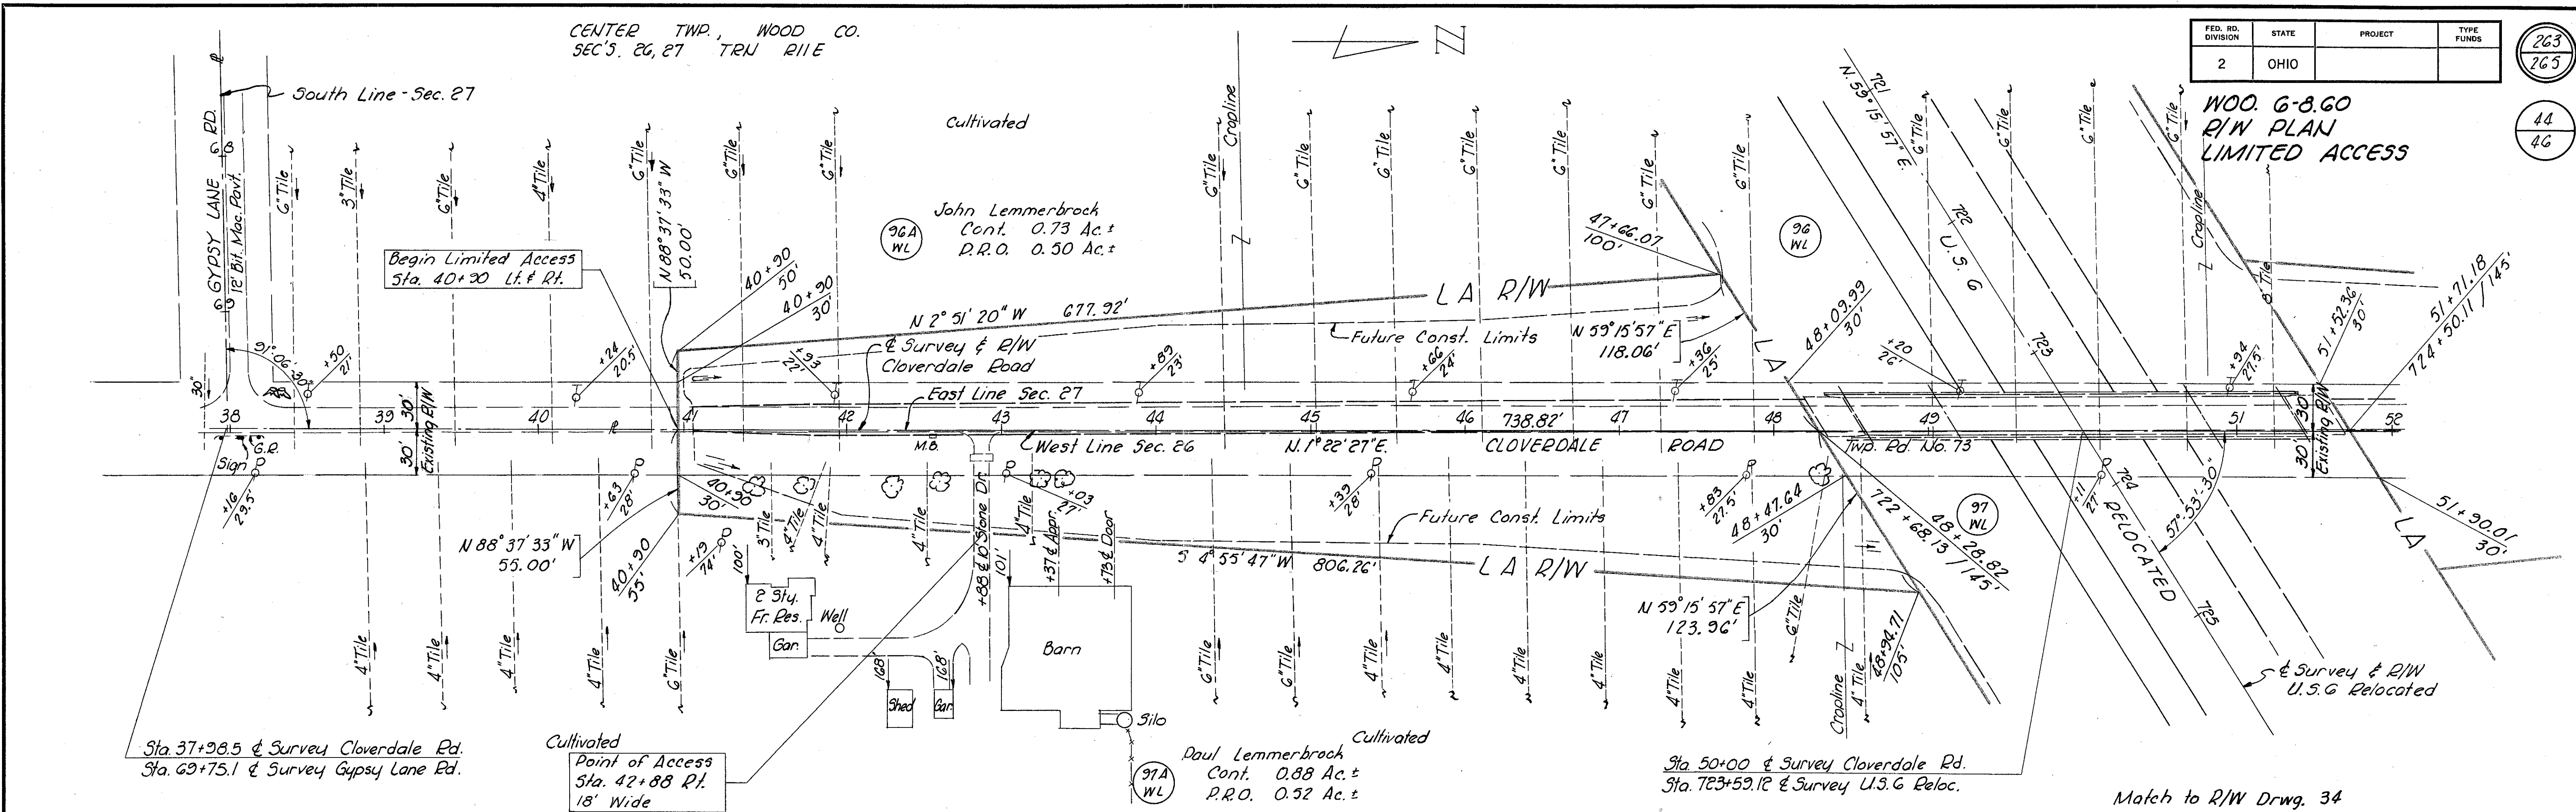 CENTER TWP., WOOD CO.
SEC'S. 26,27 T5N R11E
FED. RD. DIVISION
STATE
PROJECT
TYPE FUNDS
2
OHIO
263
265
WOO. 6-8.60
R/W PLAN
LIMITED ACCESS
44
46
South Line - Sec. 27
GYPSY LANE RD.
12' Bit. Mac. Pavt.
68
69
6" Tile
3" Tile
6" Tile
4" Tile
6" Tile
6" Tile
6" Tile
Cultivated
6" Tile
Cropline
6" Tile
6" Tile
6" Tile
6" Tile
6" Tile
6" Tile
721
N. 59° 15' 57" E.
6" Tile
6" Tile
6" Tile
6" Tile
Cropline
8" Tile
N 88° 37' 33" W
50.00'
96A
WL
John Lemmerbrock
Cont. 0.73 Ac.±
P.R.O. 0.50 Ac.±
Begin Limited Access
Sta. 40+90 Lt. & Rt.
40+90
50'
40+90
30'
47+66.07
100'
96
WL
722
U.S. 6
723
N 2° 51' 20" W 677.92'
LA R/W
Future Const. Limits
N 59° 15' 57" E
118.06'
LA
48+09.99
30'
51+52.36
30'
51+71.18
724+50.11 / 145'
91°-06'-30"
+50
21'
+24
20.5'
+93
22'
℄ Survey & R/W
Cloverdale Road
+89
23'
+66
24'
+36
25'
+20
26'
+94
27.5'
30"
East Line Sec. 27
30'
30'
Existing R/W
38
39
40
41
42
43
44
45
46
738.82'
47
48
49
51
52
30'
30'
Existing R/W
G.R.
Sign
M.B.
West Line Sec. 26
N. 1° 22' 27" E.
CLOVERDALE ROAD
Twp. Rd. No. 73
+16
29.5'
+63
28'
40+90
30'
+03
27'
+39
28'
+83
27.5'
48+47.64
30'
48+28.82
722+68.13 / 145'
97
WL
+11
27'
724
RELOCATED
57°-53'-30"
51+90.01
30'
LA
N 88° 37' 33" W
55.00'
40+90
55'
+19
74'
100'
3" Tile
4" Tile
4" Tile
4" Tile
+88 ℄ 10' Stone Dr.
4" Tile
101'
+37 ℄ Appr.
+73 ℄ Door
S 4° 55' 47" W 806.26'
Future Const. Limits
LA R/W
N 59° 15' 57" E
123.96'
725
2 Sty.
Fr. Res.
Well
Gar.
168'
168'
Shed
Gar.
Barn
Silo
4" Tile
4" Tile
4" Tile
4" Tile
6" Tile
6" Tile
6" Tile
4" Tile
4" Tile
4" Tile
4" Tile
4" Tile
4" Tile
6" Tile
Cropline
4" Tile
48+94.71
105'
℄ Survey & R/W
U.S. 6 Relocated
Sta. 37+98.5 ℄ Survey Cloverdale Rd.
Sta. 69+75.1 ℄ Survey Gypsy Lane Rd.
Cultivated
Point of Access
Sta. 42+88 Rt.
18' Wide
Cultivated
97A
WL
Paul Lemmerbrock
Cont. 0.88 Ac.±
P.R.O. 0.52 Ac.±
Sta. 50+00 ℄ Survey Cloverdale Rd.
Sta. 723+59.12 ℄ Survey U.S. 6 Reloc.
Match to R/W Drwg. 34